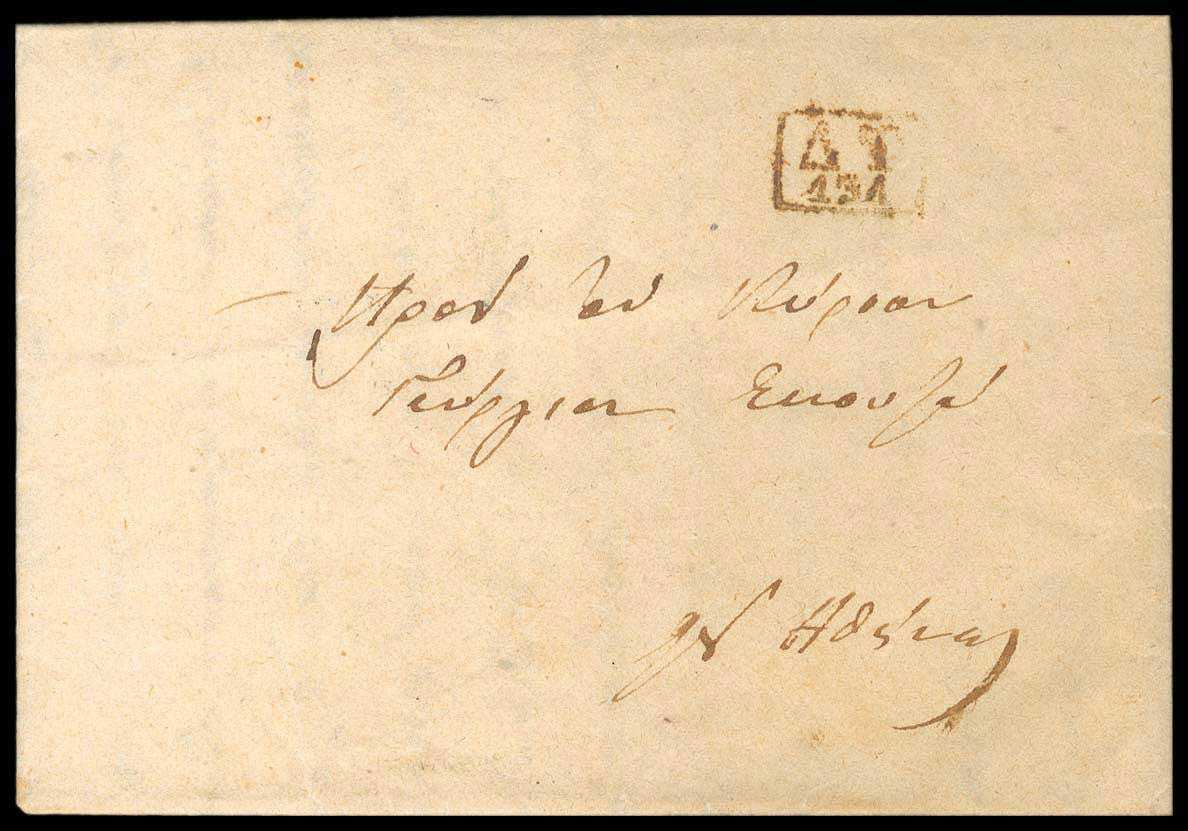 Δ Τ
151
Προς τον Κύριον
Γεώργιον Σκουζέ
Αθήνας